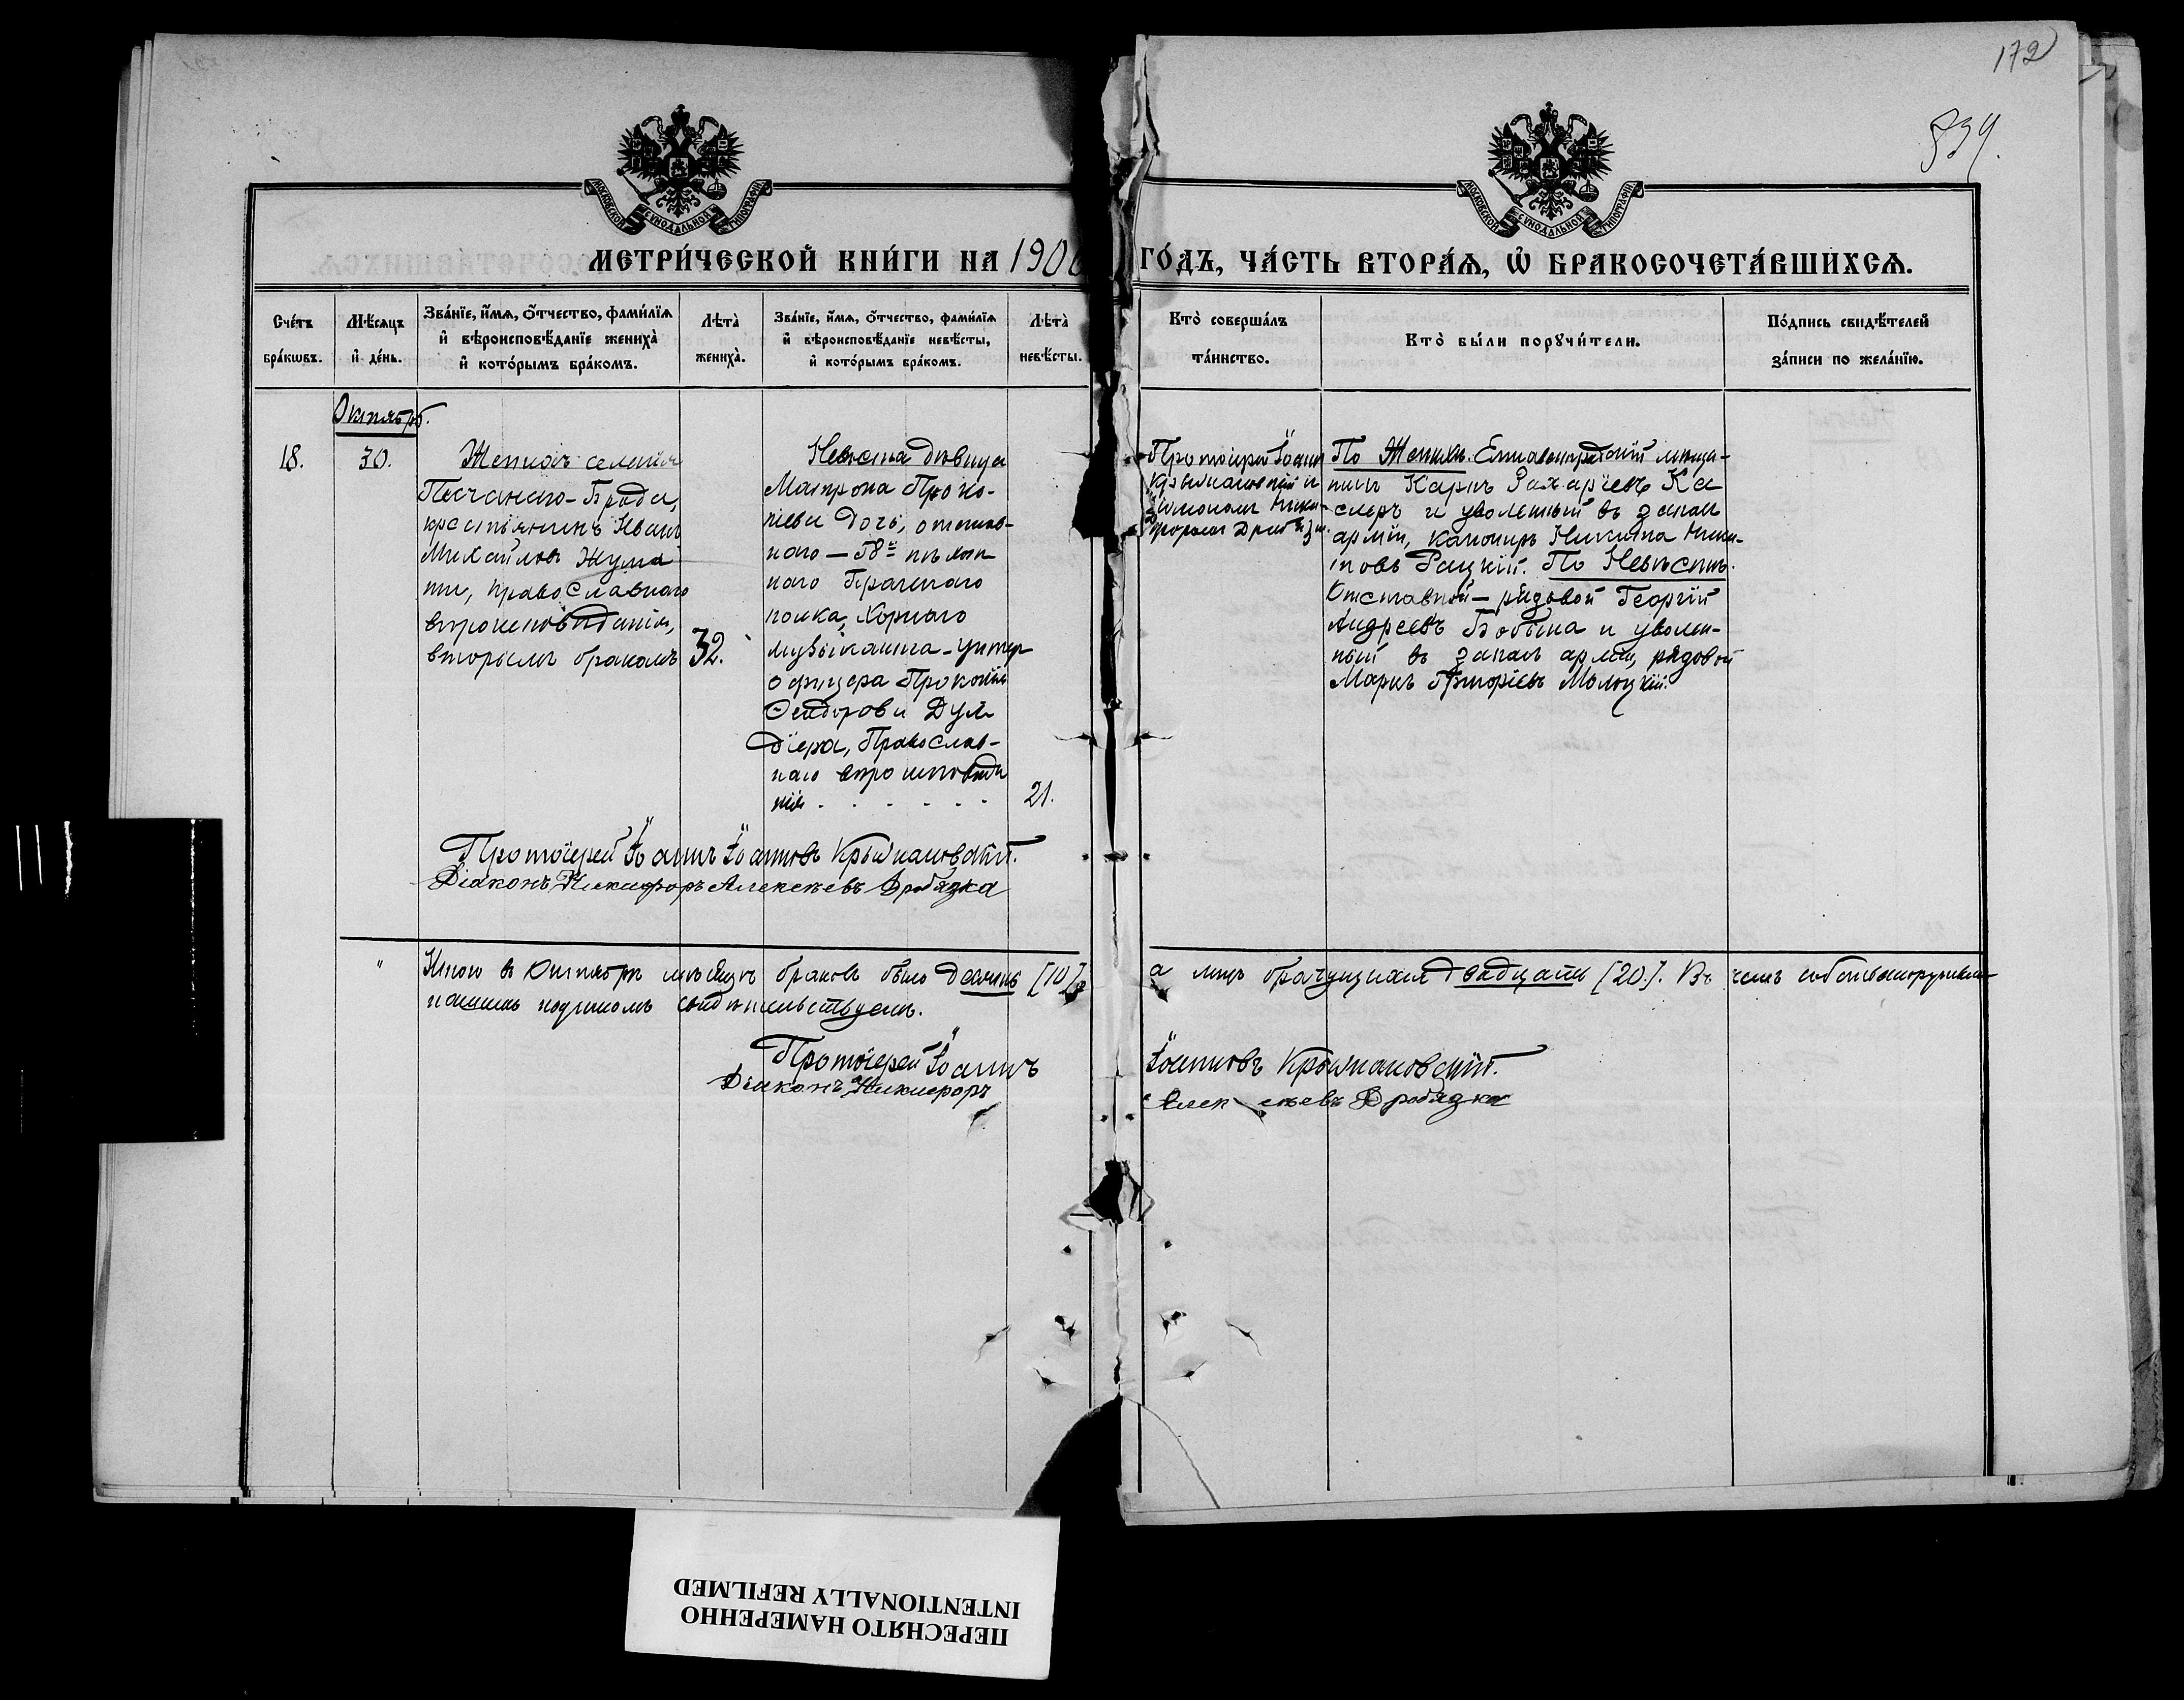 172
839.
МОСКОВСКОЙ СѴНОДАЛЬНОЙ ТИПОГРАФІИ
МОСКОВСКОЙ СѴНОДАЛЬНОЙ ТИПОГРАФІИ
МЕТРИ́ЧЕСКОЙ КНИ́ГИ НА 190
ГО́ДЪ, ЧА́СТЬ ВТОРА́Ѧ, Ѽ БРАКОСОЧЕТА́ВШИХСѦ.
Сче́тъ бра́кωвъ.
Мѣ́сяцъ и҆ де́нь.
Зва́нїе, и҆́мѧ, ѻ҆́тчество, фами́лїѧ и҆ вѣроисповѣ́данїе жениха̀ и҆ кото́рымъ бра́комъ.
Лѣта̀ жениха̀.
Зва́нїе, и҆́мѧ, ѻ҆́тчество, фами́лїѧ и҆ вѣроисповѣ́данїе невѣ́сты, и҆ кото́рымъ бра́комъ.
Лѣта̀ невѣ́сты.
Кто̀ соверша́лъ та́инство.
Кто̀ бы́ли порꙋчи́тели.
По́дпись свидѣ́телей за́писи по жела́нїю.
Октябрь.
18.
30.
Женихъ селенія
Песчанаго-Брода,
крестьянинъ Иванъ
Михайловъ
православнаго
вѣроисповѣданія,
вторымъ бракомъ
32.
Невѣста дѣвица
Матрона Проко-
піева дочь, отстав-
наго — 58го пѣхот
наго Пражскаго
полка, Хорнаго
музыканта-унтер
офицера Прокопія
Ѳеодорова Дул
діера, Православ-
наго вѣроисповѣда
нія . . . . . .
21.
Протоіерей Іоанн
Крыжановскій и
діаконъ Ники-
форъ
По Женихѣ. Елисаветградскій мѣща-
нинъ Карпъ Захаріевъ Ка
смеръ и уволенный въ запасъ
арміи, канониръ Никита Ники-
товъ Рацкій. По Невѣстѣ.
Отставной — рядовой Георгій
Андреевъ Бобына и уволен-
ный въ запасъ арміи, рядовой
Маркъ Григоріевъ Молоцкій.
Протоіерей Іоаннъ Іоанновъ Крыжановскій.
Діаконъ Никифоръ Алексѣевъ Дробязка
" Итого въ Октябрѣ мѣсяцѣ браковъ было десять [10],
а лицъ брачущихся двадцать [20.]. Въ чемъ собственноручнымъ
нашимъ подписомъ свидѣтельствуемъ.
Протоіерей Іоаннъ
Іоанновъ Крыжановскій.
Діаконъ Никифоръ
Алексѣевъ Дробязка
ПЕРЕСНЯТО НАМЕРЕННО
INTENTIONALLY REFILMED